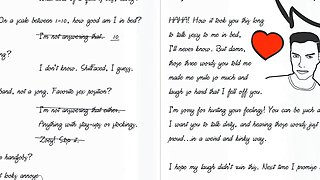 On a scale between 1-10, how good am I in bed?
I'm not answering that. 10
I don't know. Shitfaced, I guess.
band, not a song. Favorite sex position?
I'm not answering that either.
Anything with stay-ups or stockings.
Zoey! Stop it.
handjob?
booky annoys
HAHA! How it took you this long
to talk sexy to me in bed,
I'll never know. But damn,
those three words you told me
made me smile so much and
laugh so hard that I fell off you.
I'm sorry for hurting your feelings! You can be such a
I want you to talk dirty, and hearing those words just
proud...in a weird and kinky way.
I hope my laugh didn't ruin this. Next time I promise I